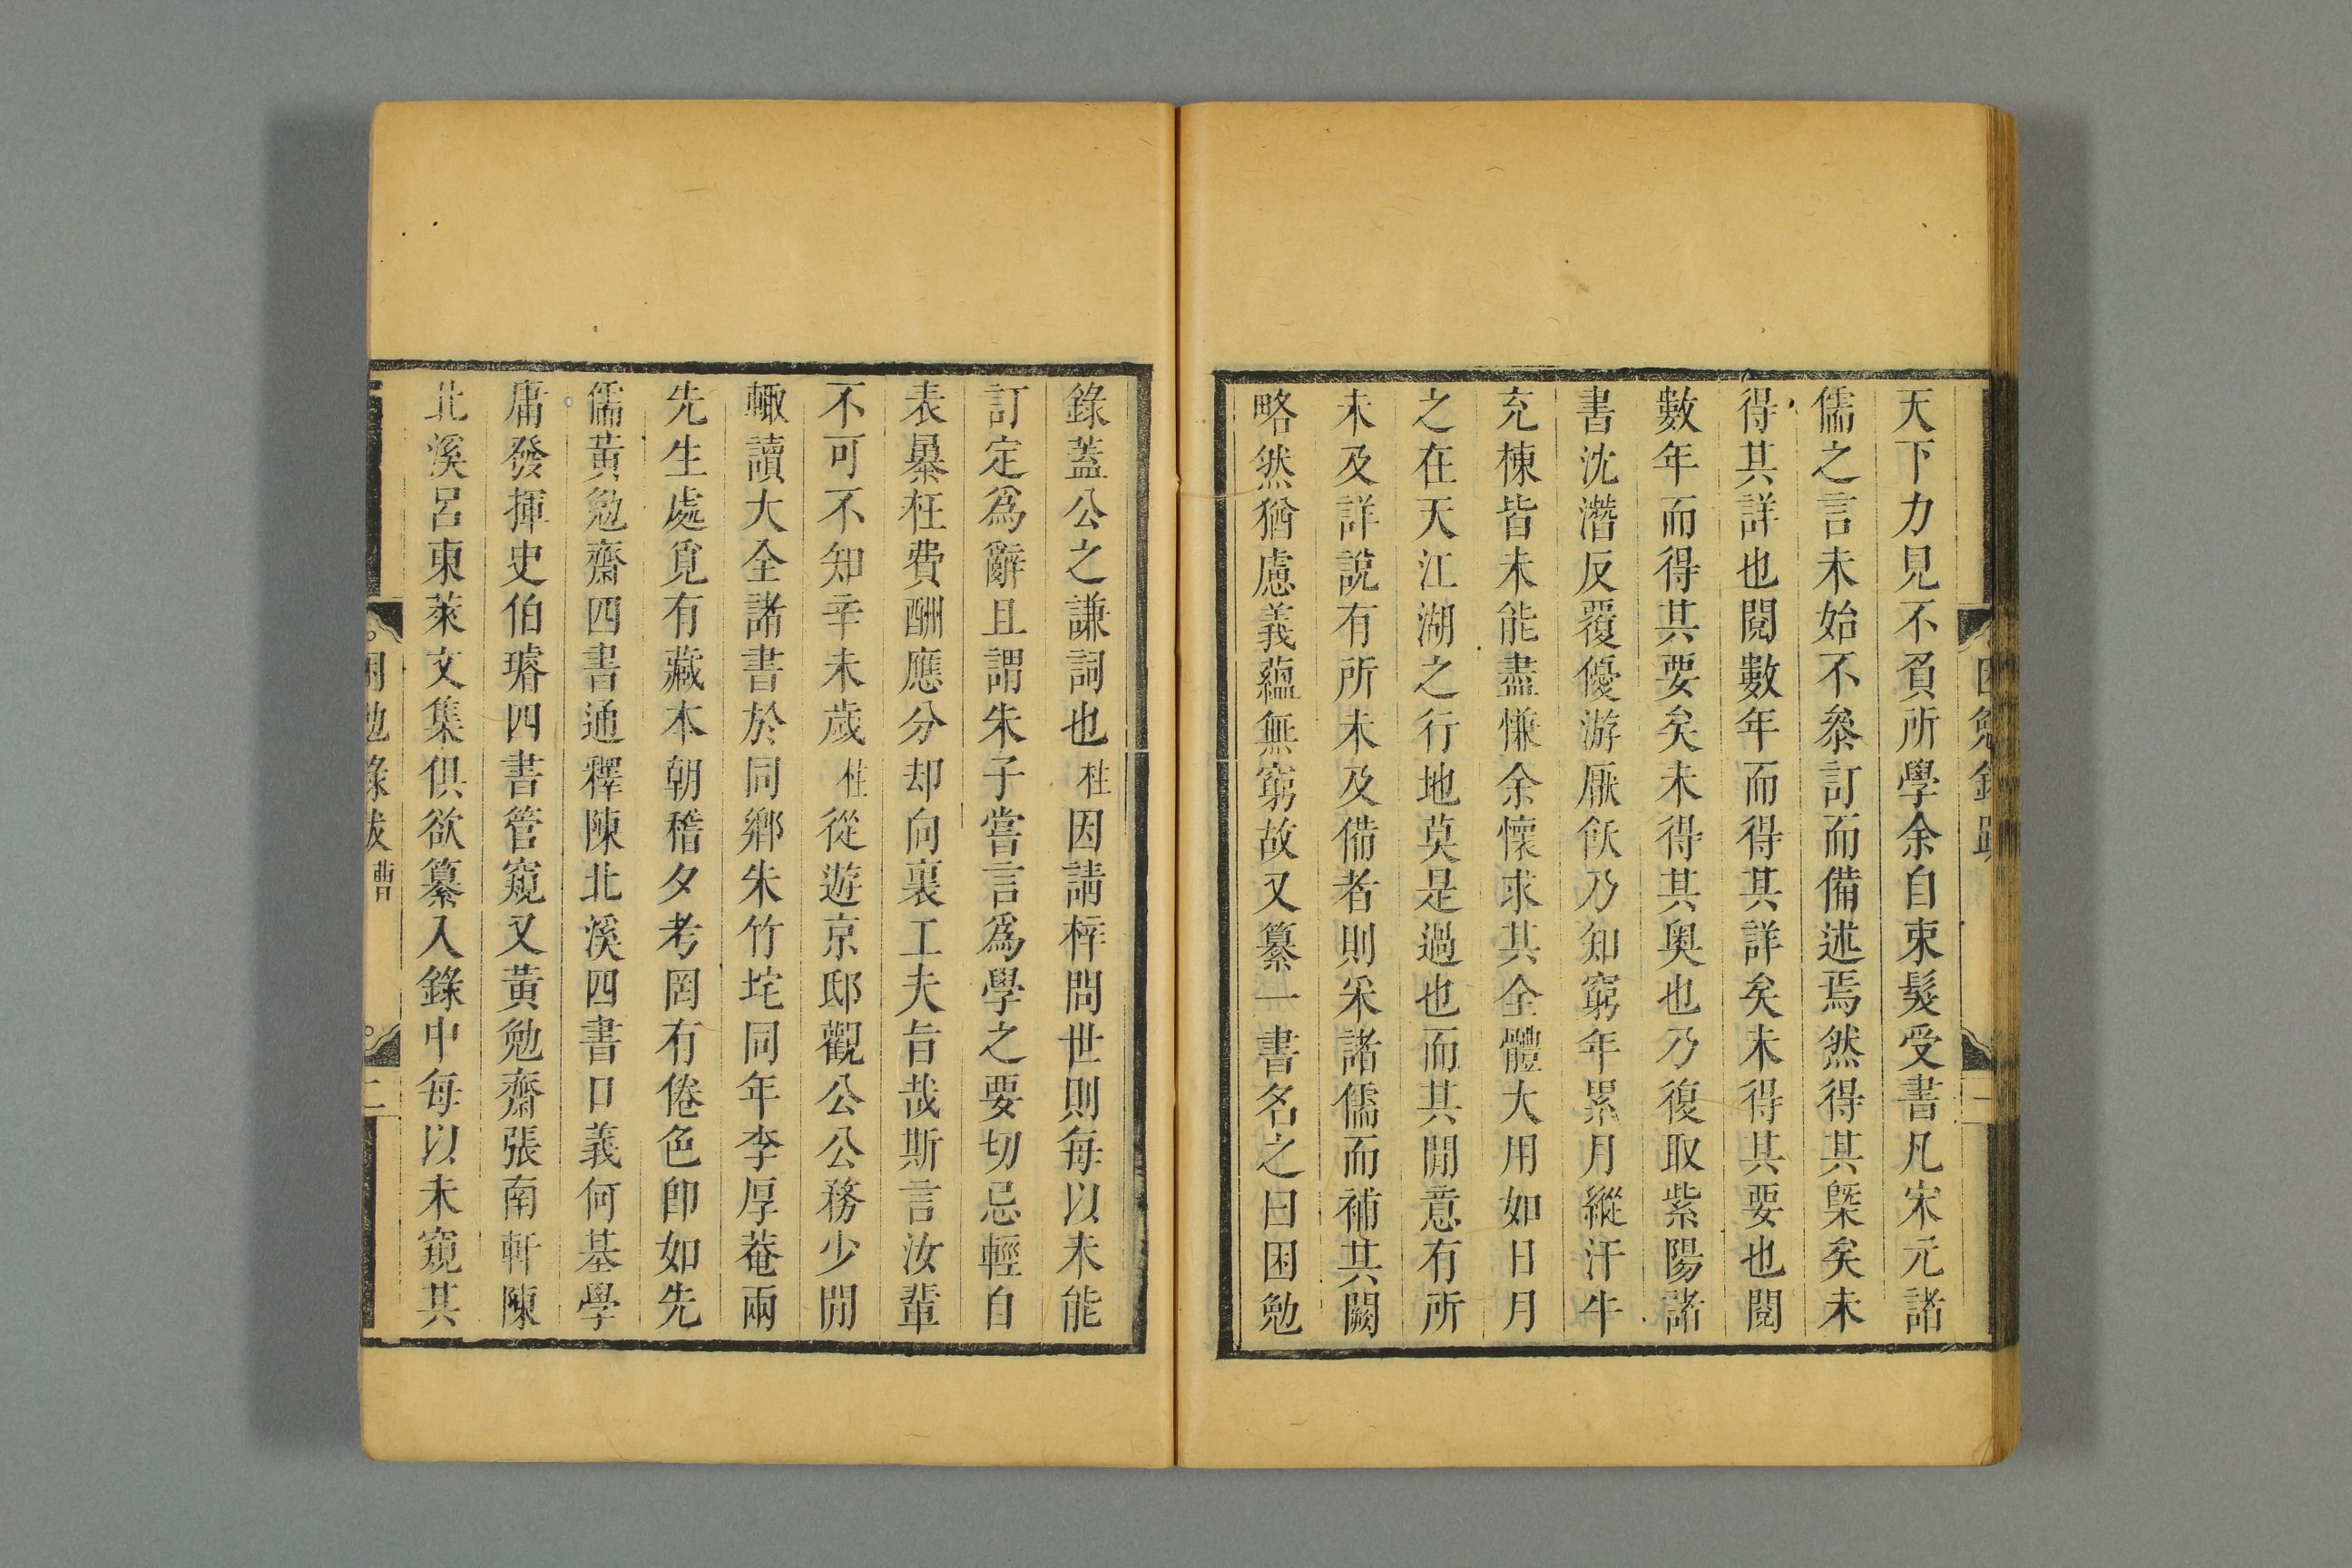 天下力見不負所學余自束髮受書凡宋元諸
儒之言未始不叅訂而備述焉然得其槩矣未
得其詳也閱數年而得其詳矣未得其要也閱
數年而得其要矣未得其奥也乃復取紫陽諸
書沈潛反覆優游厭飫乃知窮年累月縱汗牛
充棟皆未能盡慊余懷求其全體大用如日月
之在天江湖之行地莫是過也而其閒意有所
未及詳說有所未及備者則采諸儒而補其闕
略然猶慮義蘊無窮故又纂一書名之曰困勉
錄蓋公之謙詞也桂因請梓問世則每以未能
訂定爲辭且謂朱子嘗言爲學之要切忌輕自
表暴枉費酬應分却向裏工夫旨哉斯言汝輩
不可不知辛未歲桂從遊京邸觀公公務少閒
輙讀大全諸書於同鄉朱竹垞同年李厚菴兩
先生處覓有藏本朝稽夕考罔有倦色卽如先
儒黃勉齋四書通釋陳北溪四書口義何基學
庸發揮史伯璿四書管窺又黃勉齋張南軒陳
北溪呂東萊文集俱欲纂入錄中每以未窺其
勉錄跋
曹
二